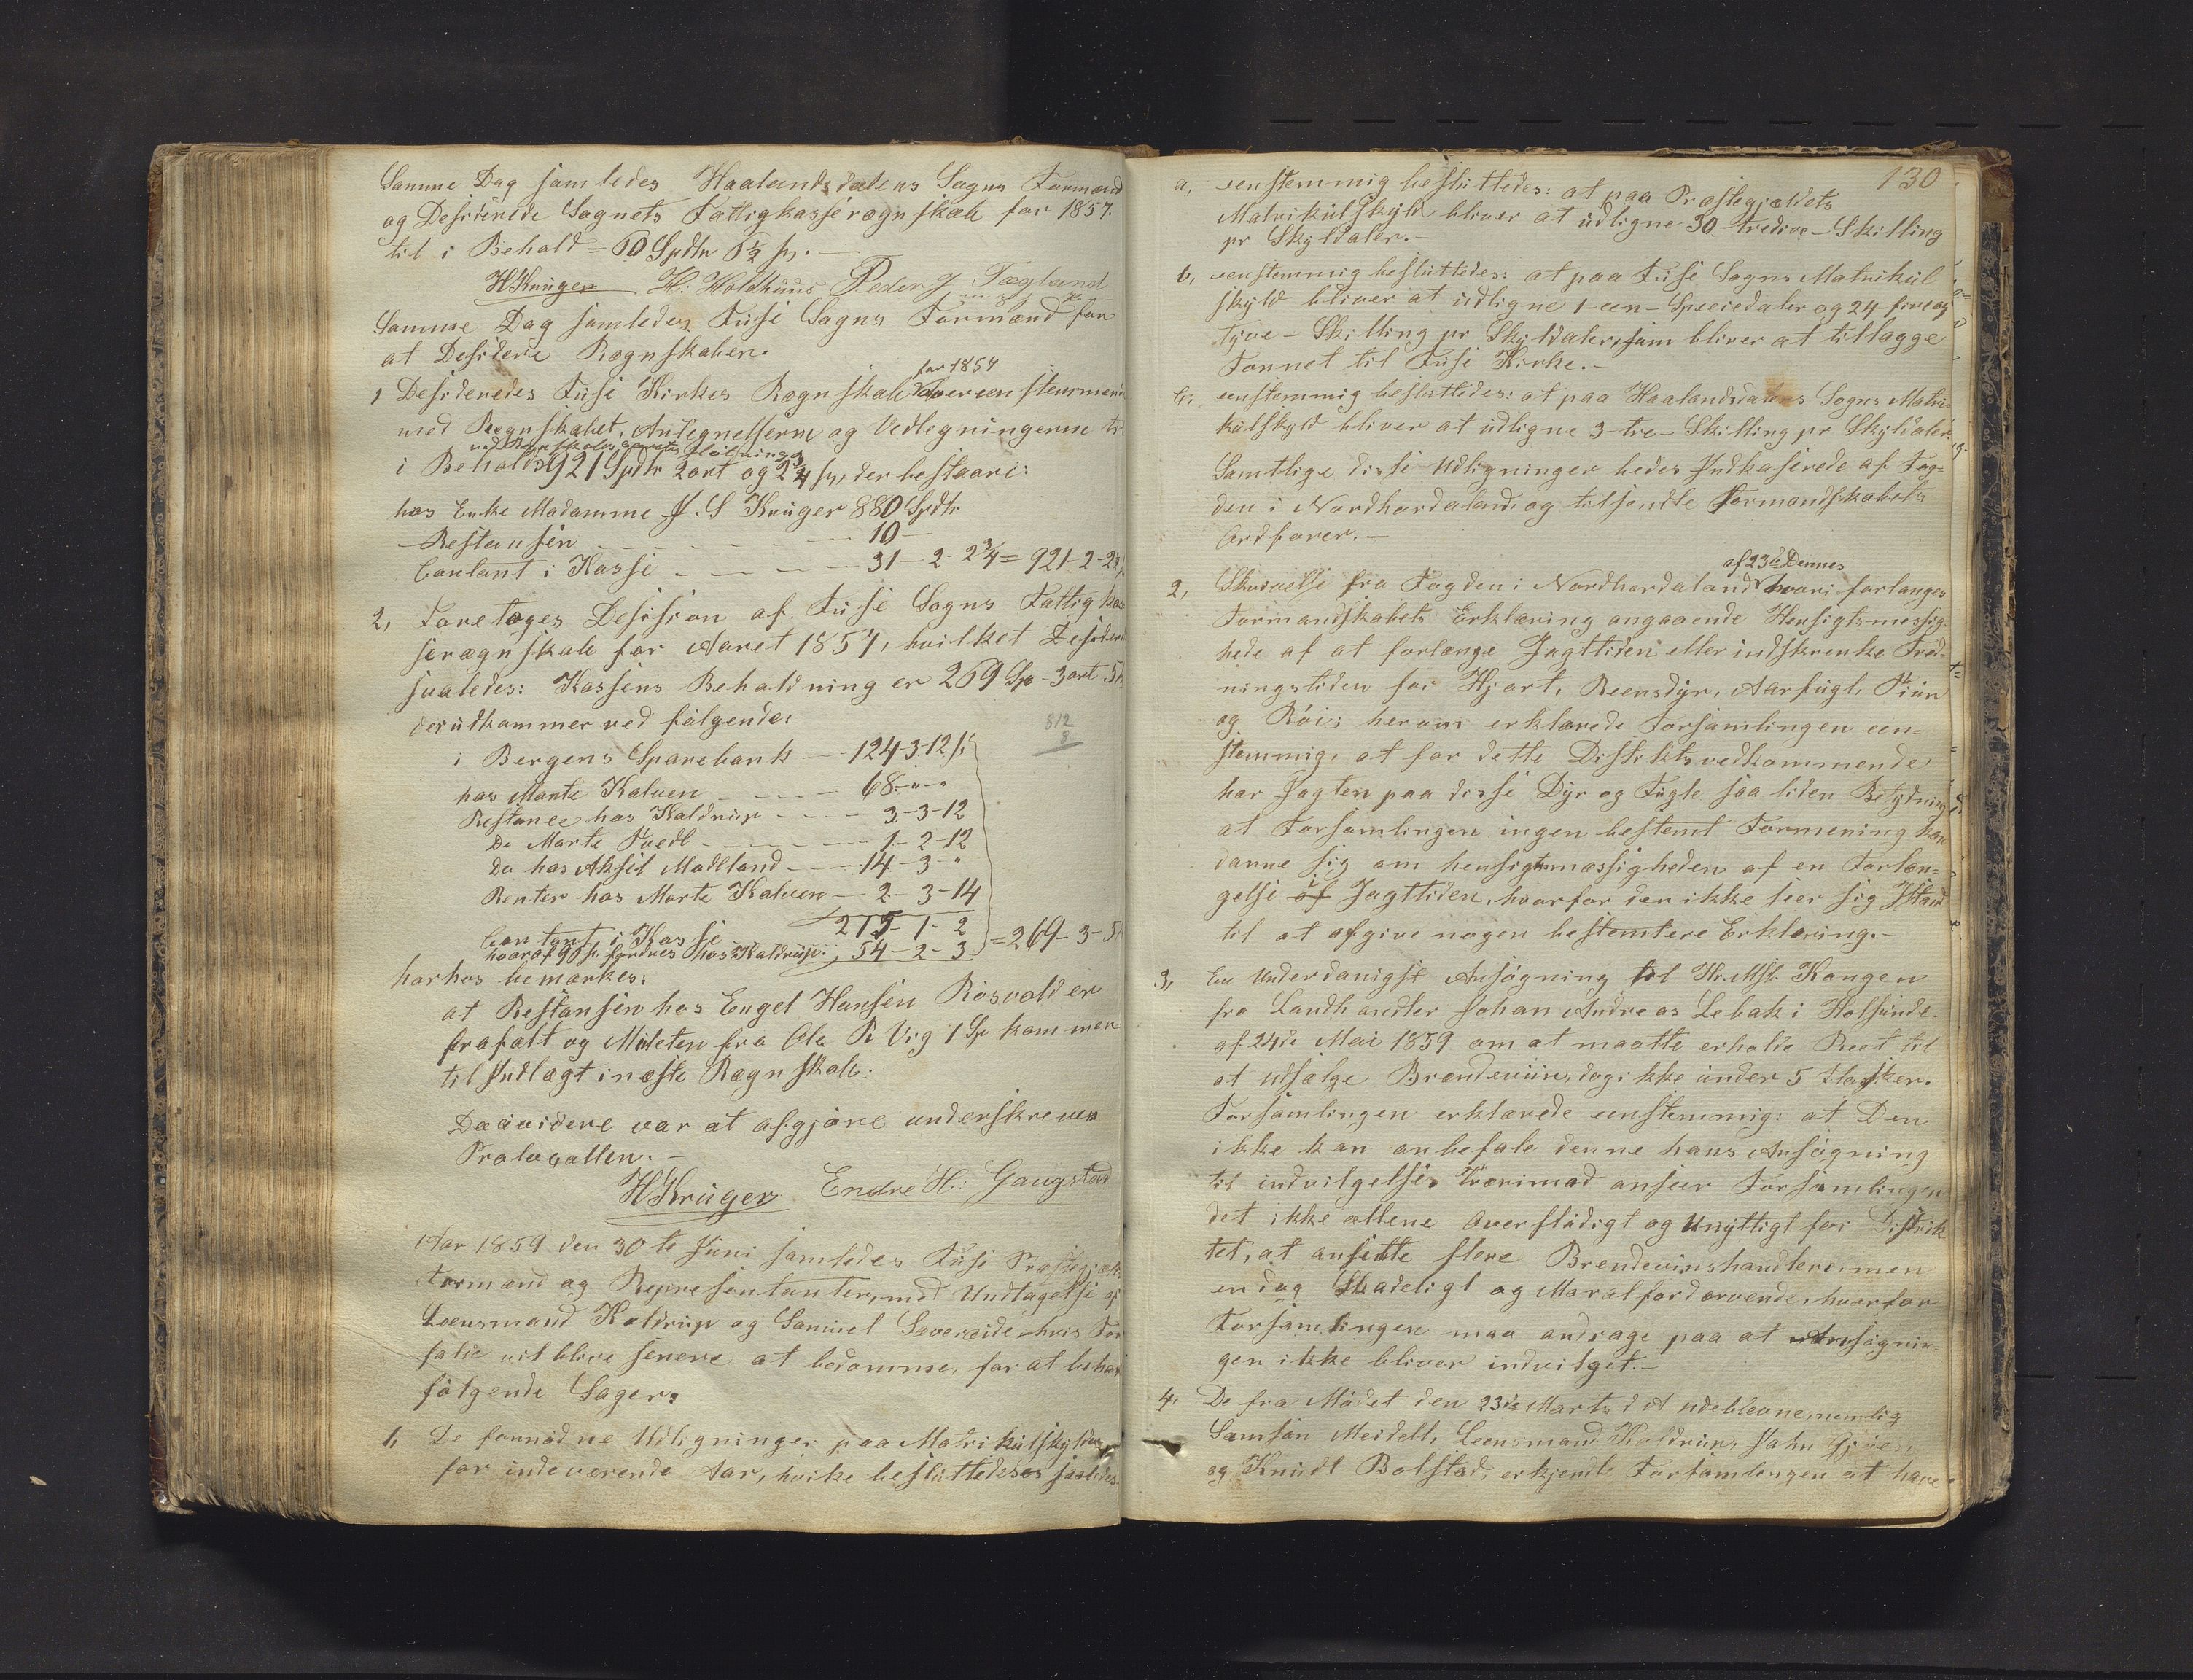 Samme Dag samledes Haalandsdalens Sogns Formænd
og Desiderede Sognets Fattigkasseregnskab for 1857.
til i Behold = 60 Spdlr 6½ s. —
HKrüger H: Holdhuus Peder J Teglund
Samme Dag samledes Fuse Sogns Formænd for
at Desidere Regnskaber.
for 1857
1 Desideredes Fuse Kirkes Regnskab overeenstemmend
med Regnskabet, Antegnelserne og Vedlegningerne til
ved Regnskabsaarets Slutning
i Behold 921 Spdlr 2 ort og 2¾ s, der bestaar i:
hos Enke Madamme J. S Krüger 880 Spdlr
Restansen — — — 10 —
Contant i Kasse — — — 31 - 2 - 2¾ = 921 - 2 - 2¾
2, Foretoges Desision af Fuse Sogns Fattigkas
seregnskab for Aaret 1857, hvilket Desideres
saaledes: Kassens Behaldning er 269 Sp - 3 ort 5 s
der udkommer ved følgende:
i Bergens Sparebank — 124-3-12 s
hos Monte Kalven — — — 68 - " - "
Restance hos Koldrup — — — 3-3-12
Do Marte Tvedt — — — 1-2-12
Do hos Aksel Madland — — 14-3-"
Renter hos Marte Kalven — 2-3-14
215-1-2
Contant i Kasse
hvoraf 90 s. fordres hos Koldrup. 54-2-3 = 269-3-5
812
8
horhos bemærkes:
at Restansen hos Engel Hansen Røsvold er
frafalt og Muleten fra Ole R Vig 1 Sp kommen
til Indtægt i næste Regnskab.
Da ei videre var at afgjøre underskreves
Protocollen. —
HKrüger Endre H: Gaugstad
Aar 1859 den 30te Juni samledes Fuse Præstegjælds
Formænd og Representanter, med Undtagelse af
Leensmand Koldrup og Samuel Sævereide hvis For
fald vil blive senere at bedømme, for at behan
følgende Sager:
1, De fornødne Udligninger paa Matrikulskylden
for indeværende Aar, hvilke besluttedes saaledes
130
a, eenstemmig besluttedes: at paa Præstegjældets
Matrikulskyld bliver at udligne 30 - tredive - Skilling
pr Skyldaler. —
b, eenstemmig besluttedes: at paa Fuse Sogns Matrikul
skyld bliver at udligne 1 - een - Speciedaler og 24 fire og
tyve - Skilling pr Skyldaler, som bliver at tillægge
Fonnet til Fuse Kirke. —
c: eenstemmig besluttedes: at paa Haalandsdalens Sogns Matri-
kulskyld bliver at udligne 3 - tre - Skilling pr Skyldaler.
Samtlige disse Udligninger bedes Indkaserede af Fog-
den i Nordhordaland, og tilsendte Formandskabets
Ordfører. —
af 23de Dennes
2, Skrivelse fra Fogden i Nordhordaland hvori forlanges
Formandskabets Erklæring angaaende Hensigtsmessig-
hede af at forlænge Jagttiden eller indskrenke Fred-
ningstiden for Hjort, Reensdyr, Aarfugl, Tiur
og Røi; herom erklærede Forsamlingen een-
stemmig, at for dette Distrikts vedkommende
har Jagten paa disse Dyr og Fugle saa liden Betydning
at Forsamlingen ingen bestemt Formening kan
danne sig om hensigtsmæssigheden af en Forlæn-
gelse af Jagttiden, hvorfor den ikke seer sig Istand
til at afgive nogen bestemtere Erklæring. —
3, En Underdanigst Ansøgning til Hr. Mst. Kongen
fra Landhandler Johan Andreas Lebak i Holsunde
af 24de Mai 1859 om at maatte erholde Ret til
at udsælge Brændeviin, dog ikke under 5 Flasker.
Forsamlingen erklærede eenstemmig: at Den
ikke kan anbefale denne hans Ansøgning
til indvilgelse. Hvorimod anseer Forsamlingen
det ikke allene Overflødigt og Unyttigt for Distrik
tet, at ansette flere Brendevinshandlere, men
endog Skadeligt og Moralfordærvende, hvorfor
Forsamlingen maa andrage paa at Ansøgnin-
gen ikke bliver indvilget. —
4, De fra Mødet den 23de Marts d A udeblevne, nemlig
Samson Meidell, Leensmand Koldrup, John Gjøen
og Knudt Bolstad, erkjendte Forsamlingen at have